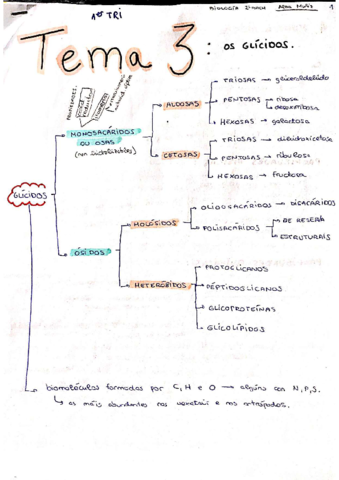 1º TRI
BIOLOXÍA 2º BACH
1
Tema 3: OS GLÍCIDOS.
GLÍCIDOS
MONOSACÁRIDOS
OU OSAS
(non hidrolizables)
ALDOSAS
TRIOSAS → gliceraldehído
PENTOSAS → ribosa
desoxirribosa
HEXOSAS → galactosa
CETOSAS
TRIOSAS → dihidroxicetosa
PENTOSAS → ribulosa
HEXOSAS → fructosa
ÓSIDOS
HOLÓSIDOS
OLIGOSACÁRIDOS → DISACÁRIDOS
POLISACÁRIDOS
DE RESERVA
ESTRUTURAIS
HETERÓSIDOS
PROTEOGLICANOS
PÉPTIDOGLICANOS
GLICOPROTEÍNAS
GLICOLÍPIDOS
biomoléculas formadas por C, H e O → algúns con N, P, S.
↳ as máis abundantes nos vexetais e nos artrópodos.